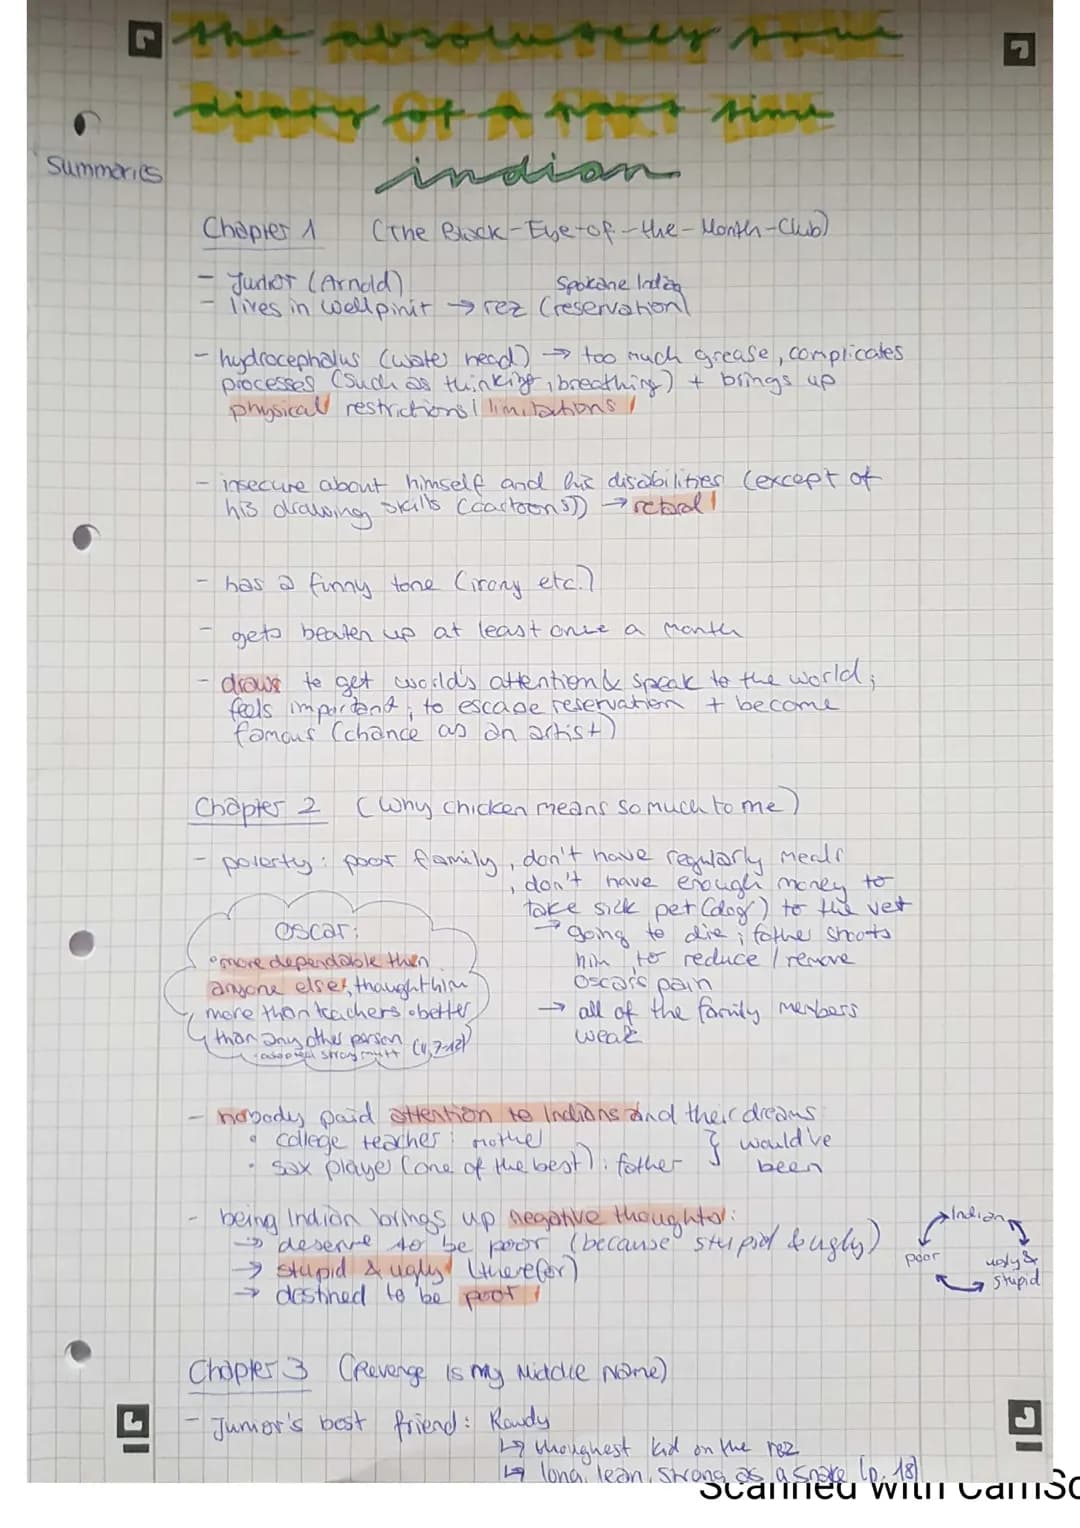 the absolutely true
diary of a part time
indian
Summaries
Chapter 1 (The Black-Eye-of-the-Month-Club)
- Junior (Arnold)
Spokane Indian
- lives in Wellpinit → rez (reservation)
- hydrocephalus (water head) → too much grease, complicates
processes (such as thinking, breathing) + brings up
physical restrictions / limitations!
- insecure about himself and his disabilities (except of
his drawing skills (cartoons)) → retard!
- has a funny tone (irony etc.)
- gets beaten up at least once a month
- draws to get world's attention & speak to the world;
feels important; to escape reservation + become
famous (chance as an artist)
Chapter 2 (Why chicken means so much to me)
- poverty: poor family, don't have regularly meals
, don't have enough money to
take sick pet (dog) to the vet
→ going to die; father shoots
him to reduce / remove
Oscar's pain
→ all of the family members
weak
Oscar:
• more dependable then
anyone else, thaught him
more than teachers • better
than any other person
• adopted stray mutt (4, 7-12)
- nobody paid attention to Indians and their dreams
• college teacher: mother
• sax player (one of the best): father
} would've
been
- being Indian brings up negative thoughts:
→ deserve to be poor (because stupid & ugly)
→ stupid & ugly (therefor)
→ destined to be poor!
Indian
poor
ugly &
stupid
Chapter 3 (Revenge is my Middle Name)
- Junior's best friend: Rowdy
↳ thoughest kid on the rez
↳ long, lean, strong as a snake (p. 18)
Scanned with CamSc